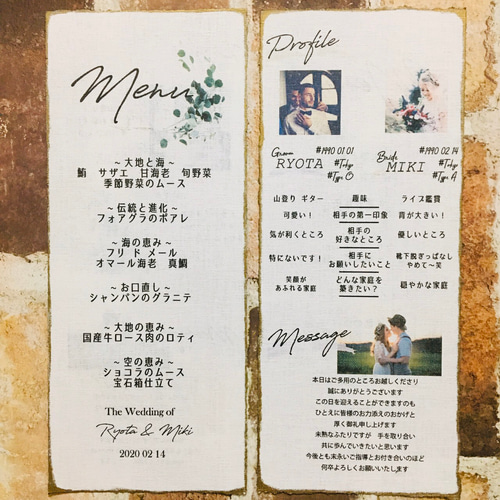 Menu
～大地と海～
鮪　サザエ　甘海老　旬野菜
季節野菜のムース
～伝統と進化～
フォアグラのポアレ
～海の恵み～
フリ ド メール
オマール海老　真鯛
～お口直し～
シャンパンのグラニテ
～大地の恵み～
国産牛ロース肉のロティ
～空の恵み～
ショコラのムース
宝石箱仕立て
The Wedding of
Ryota & Miki
2020 02 14
Profile
Groom
RYOTA
#1990 01 01
#Tokyo
#Type O
Bride
MIKI
#1990 02 14
#Tokyo
#Type A
山登り ギター　趣味　ライブ鑑賞
可愛い！　相手の第一印象　背が大きい！
気が利くところ　相手の好きなところ　優しいところ
特にないです！　相手にお願いしたいこと　靴下脱ぎっぱなしやめて〜笑
笑顔があふれる家庭　どんな家庭を築きたい？　穏やかな家庭
Message
本日はご多用のところお越しくださり
誠にありがとうございます
この日を迎えることができますのも
ひとえに皆様のお力添えのおかげと
厚く御礼申し上げます
未熟なふたりですが　手を取り合い
共に歩んでいきたいと思います
今後とも末永いご指導とお付き合いのほど
何卒よろしくお願いいたします